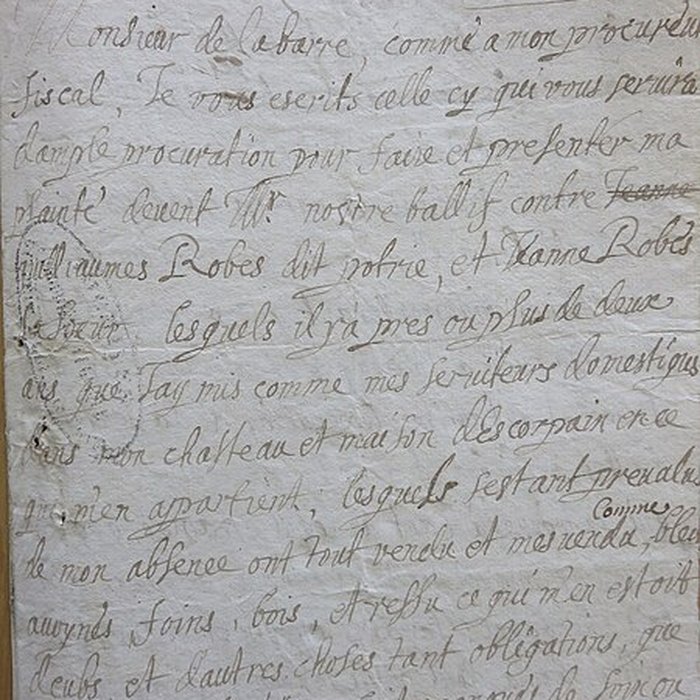 Monsieur de la barre, comme a mon procureur
fiscal, Je vous escrits celle cy qui vous servira
dample procuration pour faire et presenter ma
plainte devent Mr nostre ballif contre Jeanne
guilliaumes Robes dit potrie, et Jeanne Robes
sa soeur lesquels il y a pres ou plus de deux
ans que Jay mis comme mes serviteurs domestiques
dans mon chasteau et maison dEscorpain en ce
qui m'en appartient, lesquels sestant prevalus
Comme
de mon absence ont tout vendu et mesvendu, bleds
auoynes, foins, bois, et ressu ce qui m'en estoit
deubs et d'autres choses tant obligations, que
de foin ou